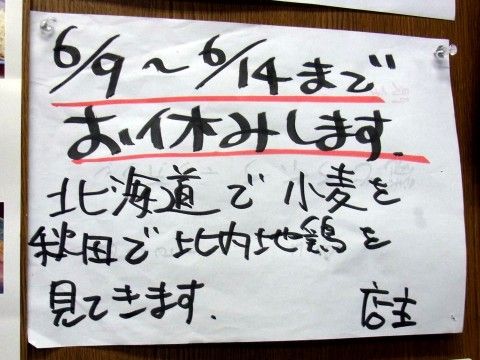 6/9～6/14まで
お休みします.
北海道で小麦を
秋田で比内地鶏を
見てきます. 店主